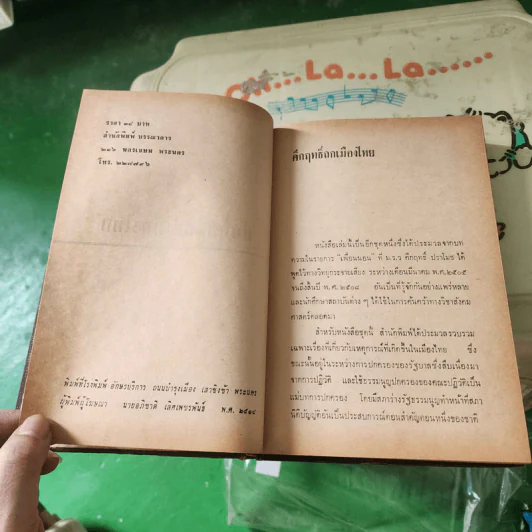 La...La......
ราคา ๓๙ บาท
สำนักพิมพ์ บรรณาคาร
๒๓๖ นครเกษม พระนคร
โทร. ๒๒๗๗๙๖
พิมพ์ที่โรงพิมพ์ อักษรบริการ ถนนบำรุงเมือง เสาชิงช้า พระนคร
ผู้พิมพ์ผู้โฆษณา นายอภิชาติ เลิศเพชรพันธ์ พ.ศ. ๒๕๑๔
คึกฤทธิ์ถกเมืองไทย
หนังสือเล่มนี้เป็นอีกชุดหนึ่งซึ่งได้ประมวลจากบท
ความในรายการ "เพื่อนนอน" ที่ ม.ร.ว คึกฤทธิ์ ปราโมช ได้
พูดไว้ทางวิทยุกระจายเสียง ระหว่างเดือนมีนาคม พ.ศ.๒๕๐๕
จนถึงสิ้นปี พ.ศ.๒๕๐๘ อันเป็นที่รู้จักกันอย่างแพร่หลาย
และนักศึกษาสถาบันต่าง ๆ ได้ใช้ในการค้นคว้าทางวิชาสังคม
ศาสตร์ตลอดมา
สำหรับหนังสือชุดนี้ สำนักพิมพ์ได้ประมวลรวบรวม
เฉพาะเรื่องที่เกี่ยวกับเหตุการณ์ที่เกิดขึ้นในเมืองไทย ซึ่ง
ขณะนั้นอยู่ในระหว่างการปกครองของรัฐบาลซึ่งสืบเนื่องมา
จากการปฏิวัติ และใช้ธรรมนูญปกครองของคณะปฏิวัติเป็น
แม่บทการปกครอง โดยมีสภาร่างรัฐธรรมนูญทำหน้าที่สภา
นิติบัญญัติอันเป็นประสบการณ์ตอนสำคัญตอนหนึ่งของชาติ